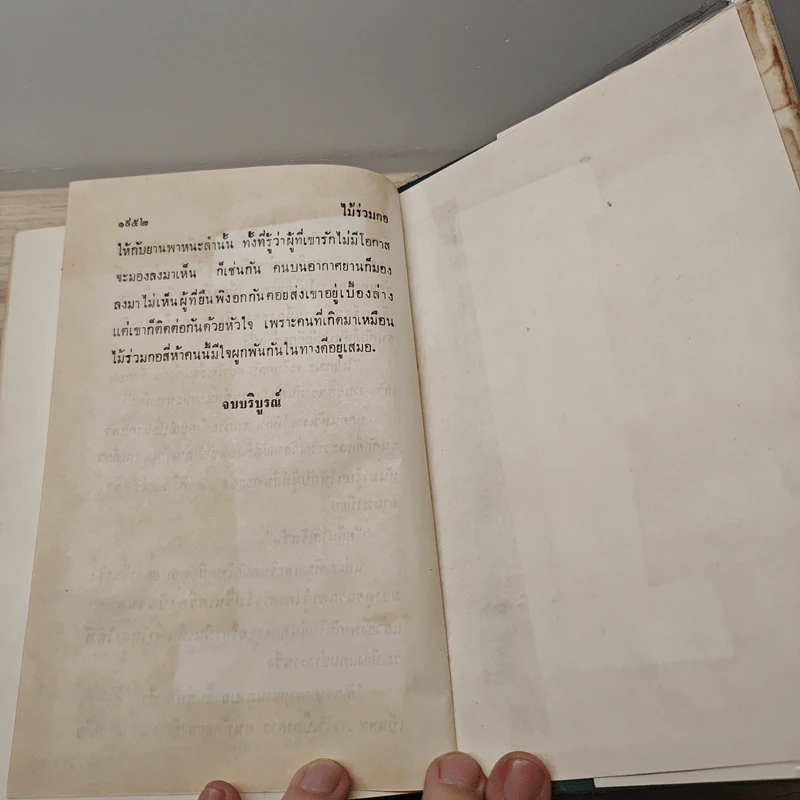 ๑๙๕๒ ไม้ร่วมกอ
ให้กับยานพาหนะลำนั้น ทั้งที่รู้ว่าผู้ที่เขารักไม่มีโอกาส
จะมองลงมาเห็น ก็เช่นกัน คนบนอากาศยานก็มอง
ลงมาไม่เห็นผู้ที่ยืนพิงอกกันคอยส่งเขาอยู่เบื้องล่าง
แต่เขาก็ติดต่อกันด้วยหัวใจ เพราะคนที่เกิดมาเหมือน
ไม้ร่วมกอสี่ห้าคนนี้มีใจผูกพันกันในทางดีอยู่เสมอ.
จบบริบูรณ์